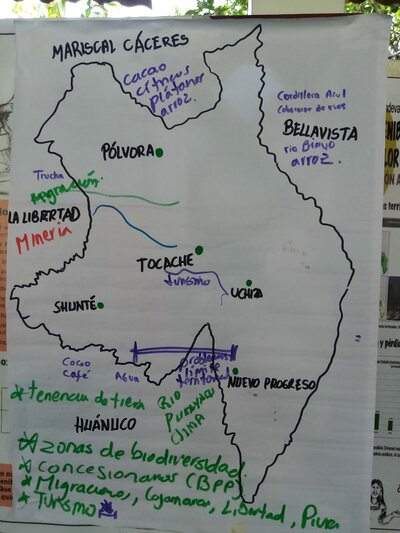 MARISCAL CÁCERES
cacao
cítricos
plátanos
arroz.
Cordillera Azul
Cabeceras de ríos
BELLAVISTA
río Biavo
arroz.
PÓLVORA
Trucha
Migración
LA LIBERTAD
Minería
TOCACHE
turismo
UCHIZA
SHUNTÉ
problemas
límite
territorial
Cacao
Café
Agua
NUEVO PROGRESO
* tenencia de tierra
RIO
HUÁNUCO
* ZONAS DE biodiversidad
* Concesionarias (BPP)
* Migraciones, Cajamarca, Libertad, Piura
* Turismo